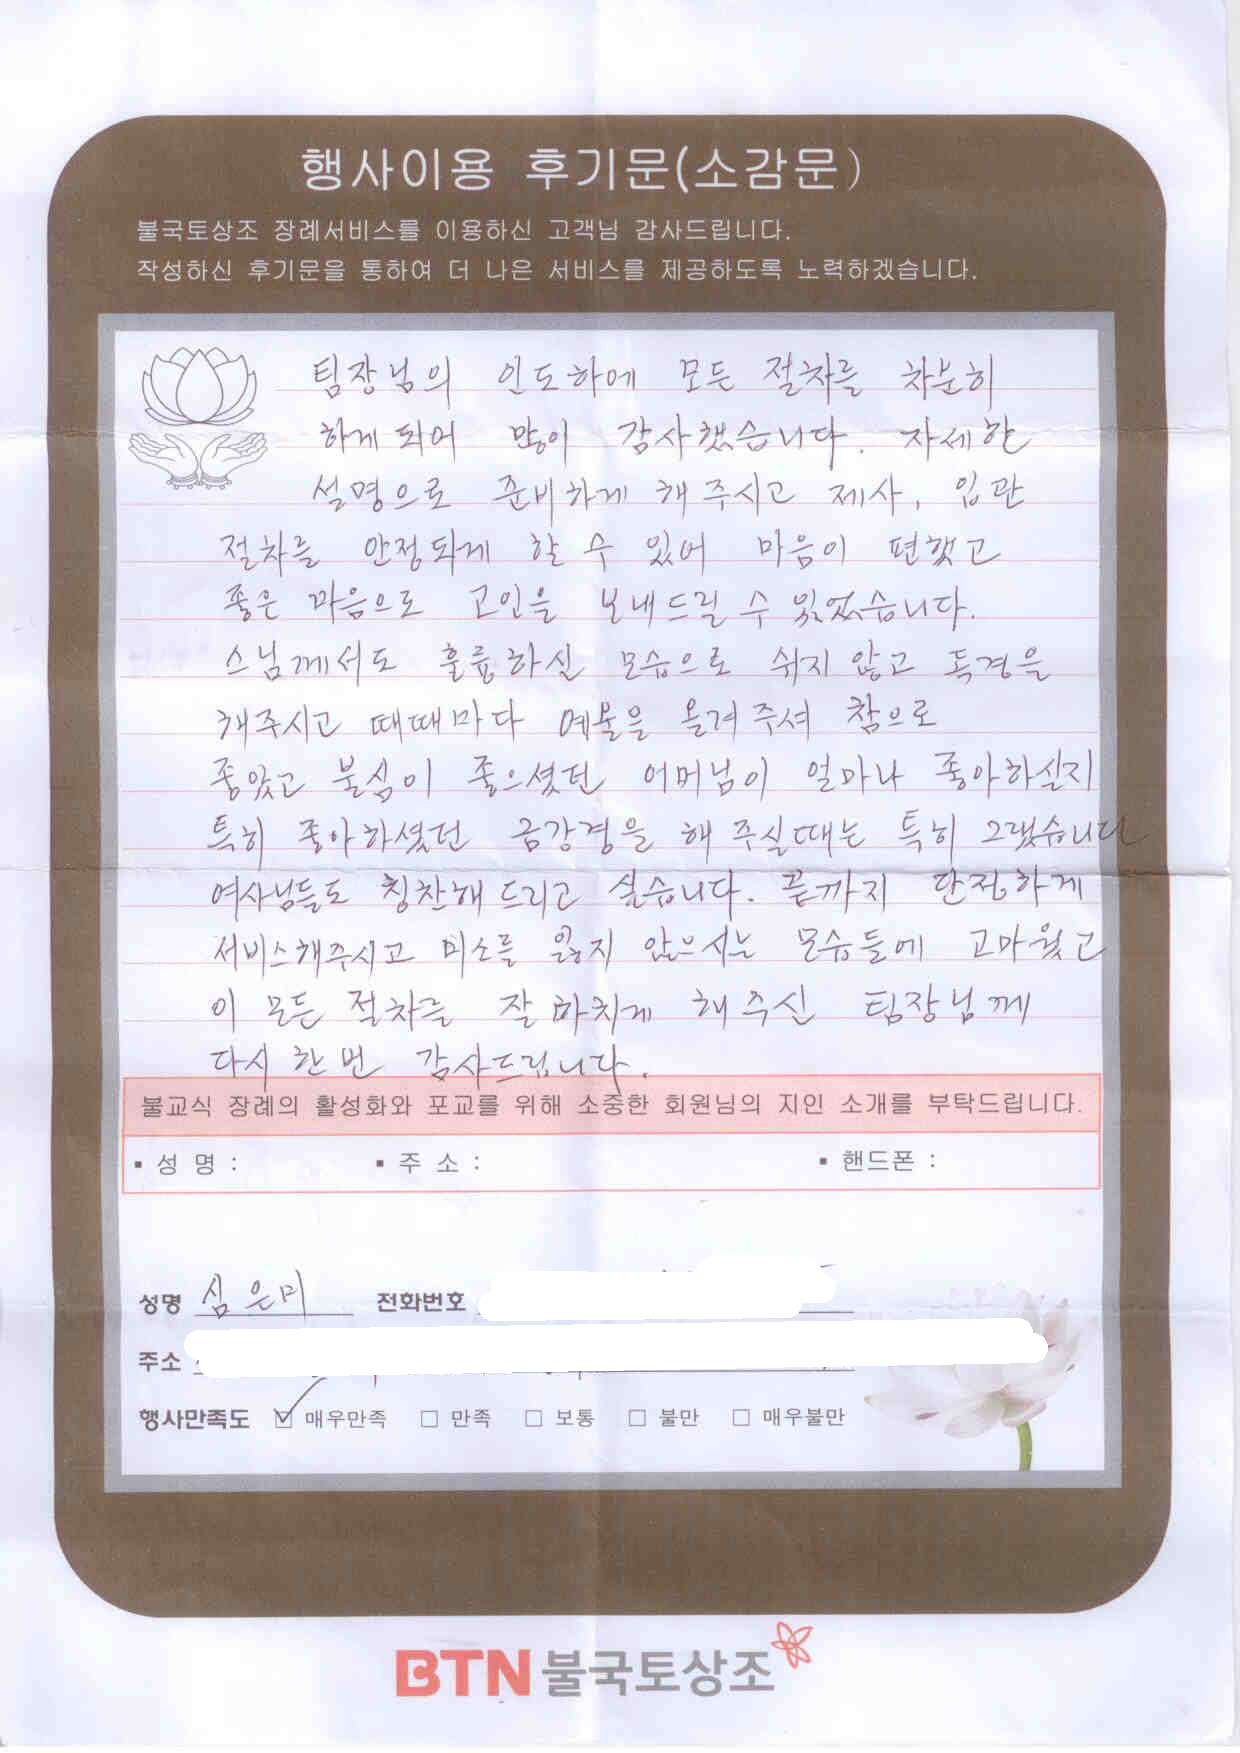 행사이용 후기문(소감문)
불국토상조 장례서비스를 이용하신 고객님 감사드립니다.
작성하신 후기문을 통하여 더 나은 서비스를 제공하도록 노력하겠습니다.
팀장님의 인도하에 모든 절차를 차분히
하게되어 많이 감사했습니다. 자세한
설명으로 준비하게 해주시고 제사, 입관
절차를 안정되게 할 수 있어 마음이 편했고
좋은 마음으로 고인을 보내드릴 수 있었습니다.
스님께서도 훌륭하신 모습으로 쉬지 않고 독경을
해주시고 때때마다 예불을 올려주셔 참으로
좋았고 불심이 좋으셨던 어머님이 얼마나 좋아하실지
특히 좋아하셨던 금강경을 해 주실때는 특히 그랬습니다
여사님들도 칭찬해 드리고 싶습니다. 끝까지 단정하게
서비스해주시고 미소를 잃지 않으시는 모습들에 고마웠고
이 모든 절차를 잘 마치게 해주신 팀장님께
다시 한번 감사드립니다.
불교식 장례의 활성화와 포교를 위해 소중한 회원님의 지인 소개를 부탁드립니다.
▪ 성 명 : ▪ 주 소 : ▪ 핸드폰 :
성명 심은미 전화번호
주소
행사만족도 ☑ 매우만족 □ 만족 □ 보통 □ 불만 □ 매우불만
BTN 불국토상조